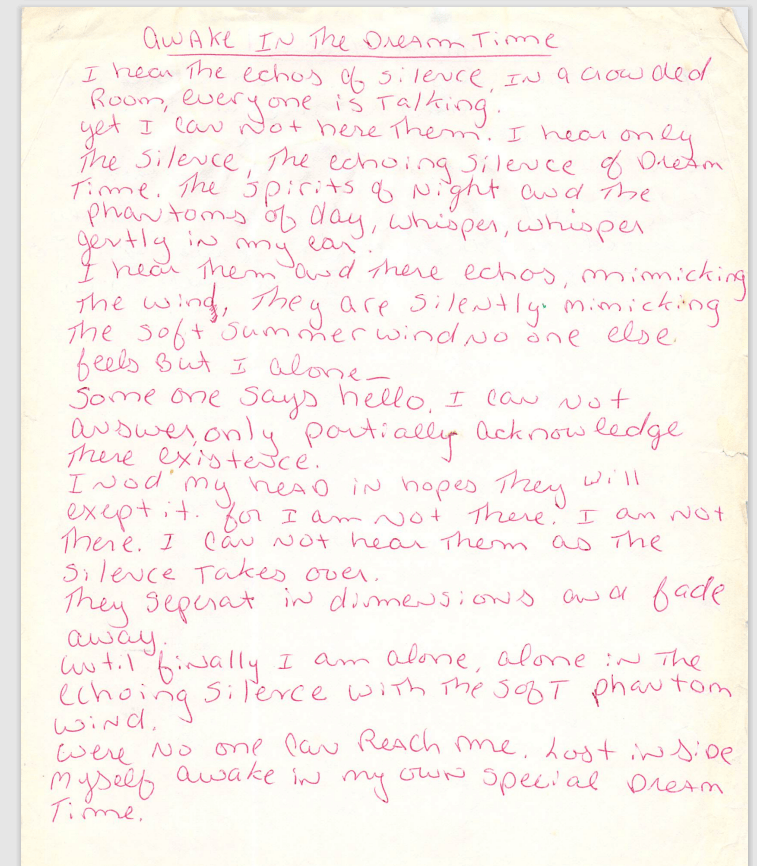 Awake In The Dream Time
I hear the echos of silence, in a crowded
Room, everyone is talking.
yet I can not here them. I hear only
the silence, the echoing silence of Dream
Time. The spirits of Night and the
phantoms of day, whisper, whisper
gently in my ear.
I hear them and there echos, mimicking
the wind, They are silently mimicking
the soft summer wind no one else
feels But I alone—
Some one says hello, I can not
answer, only partially acknowledge
there existence.
I nod my head in hopes they will
exept it. for I am not there. I am not
there. I can not hear them as the
silence takes over.
They seperat in dimensions and fade
away.
until finally I am alone, alone in the
echoing silence with the soft phantom
wind.
were no one can Reach me. Lost inside
myself awake in my own special Dream
Time.